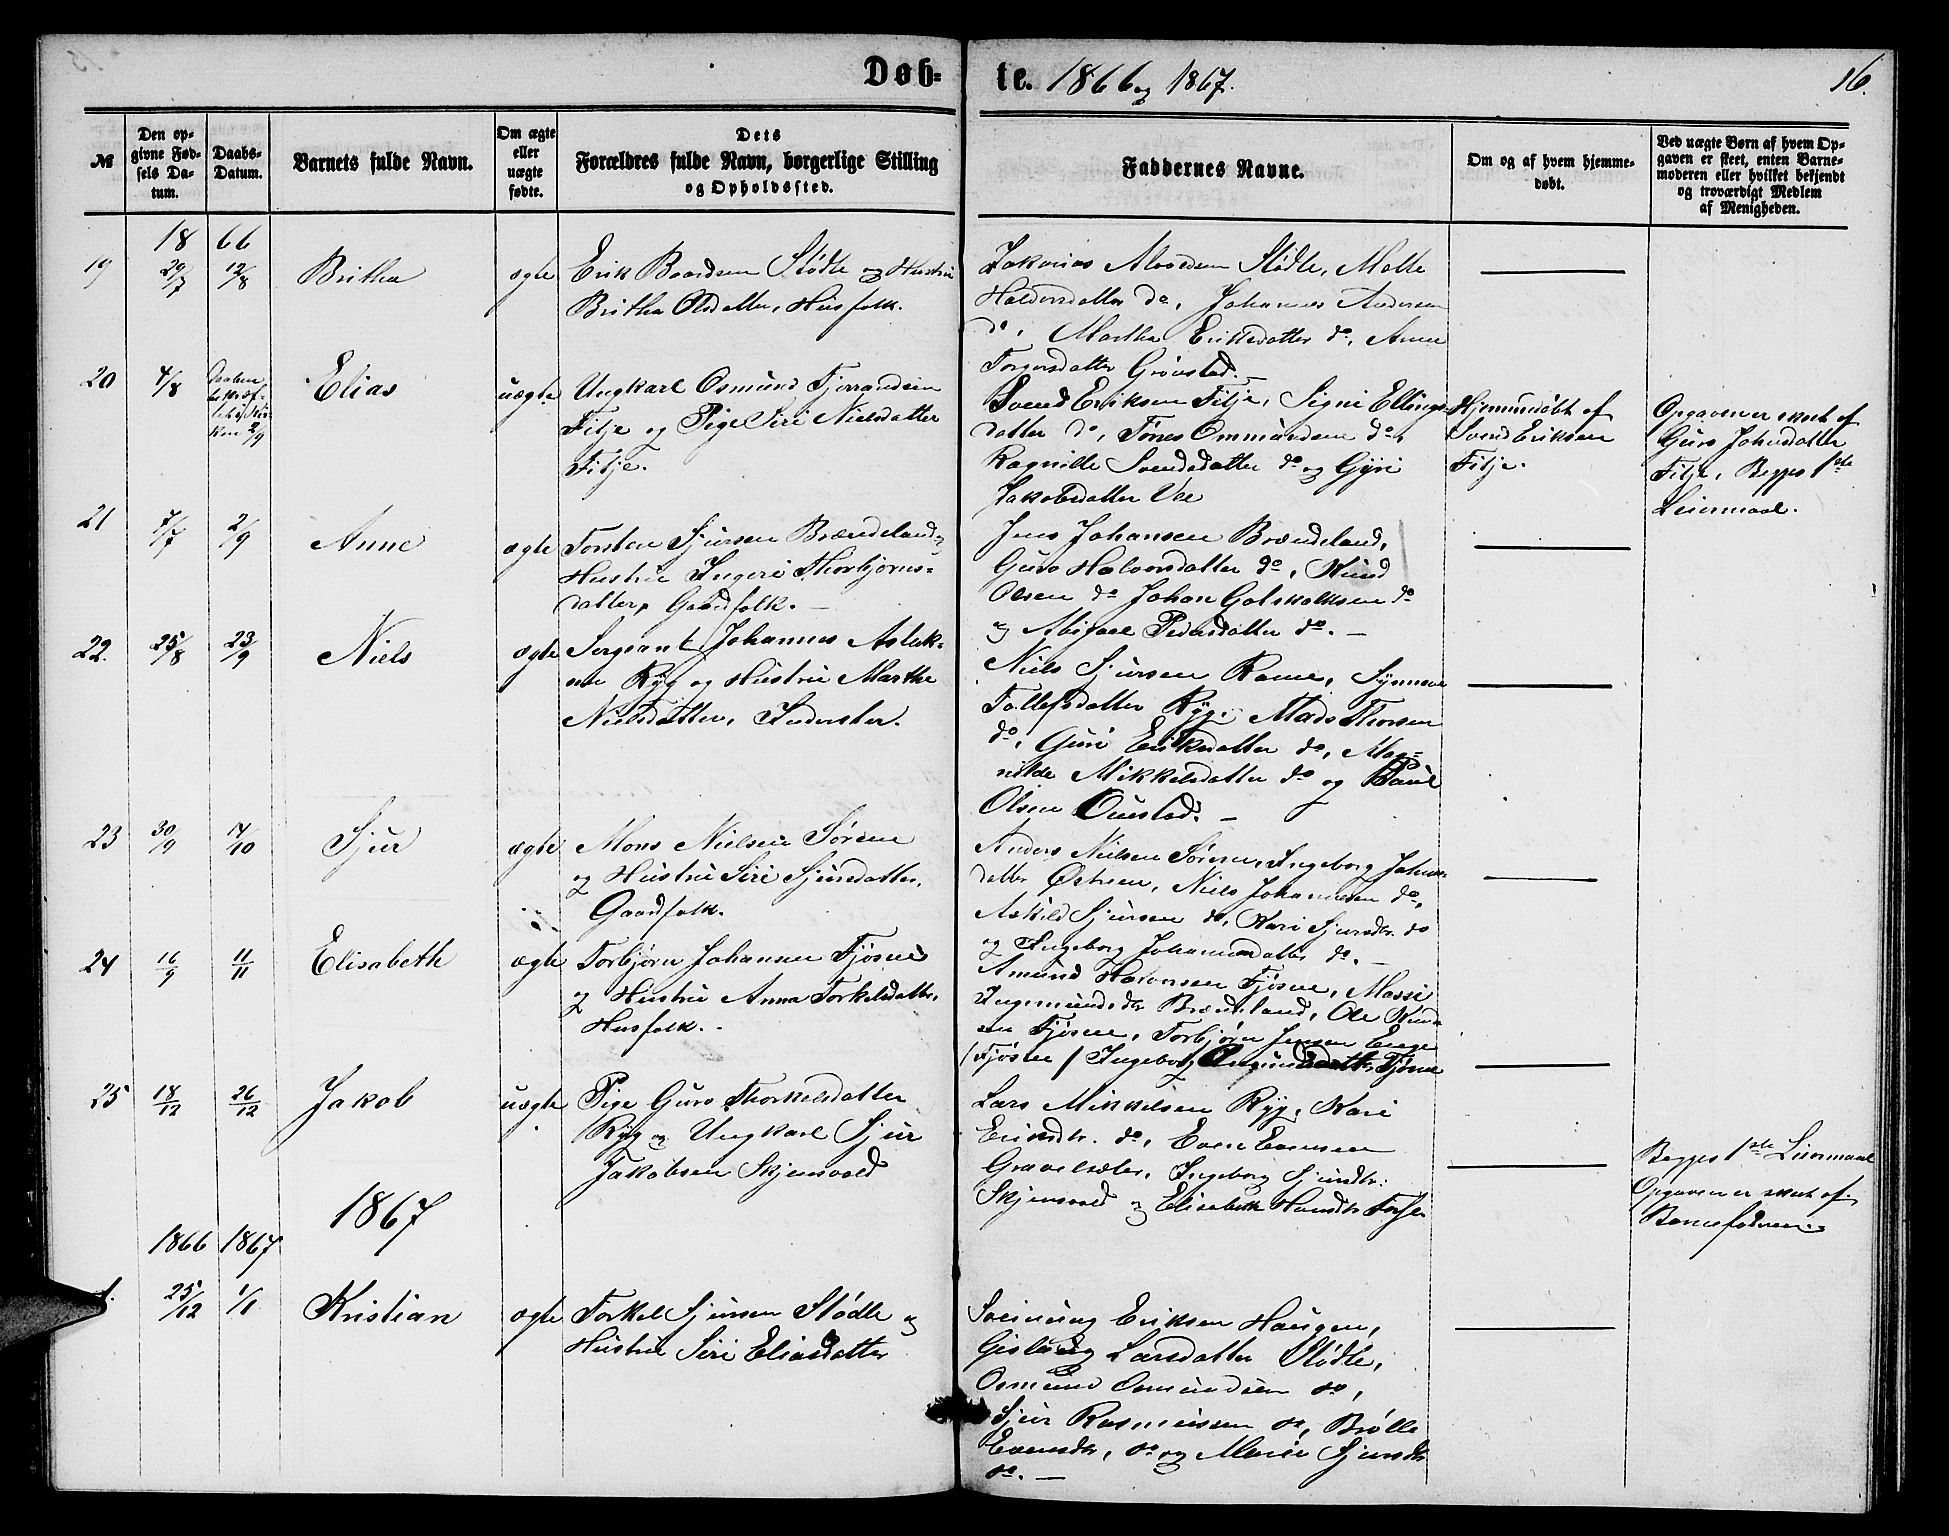 Døb-
te. 1866 og 1867.
16.
№
Den op-
givne Fød-
sels Da-
tum.
Daabs-
Datum.
Barnets fulde Navn.
Om ægte
eller
uægte
fødte.
Dets
Forældres fulde Navn, borgerlige Stilling
og Opholdssted.
Faddernes Navne.
Om og af hvem hjemme-
døbt.
Ved uægte Børn af hvem Op-
gaven er skeet, enten Barne-
moderen eller hvilket bekjendt
og troværdigt Medlem
af Menigheden.
1866
19 29/7 12/8 Britha ægte
Erik Baardsen Stødle og Hustru
Britha Olsdatter, Husfolk.
Stødle, Malle
Haldorsdatter do, Johannes Andersen
do, Martha Eriksdatter do, Anne
Torgersdatter Grønstad.
20 4/8 Daaben
bekræf-
tet i Kir-
ken 2/9
Elias uægte
Ungkarl Osmund Tjerrandsen
Fitje og Pige Siri Nielsdatter
Fitje.
Svend Eriksen Fitje, Signi Ellings-
datter do, Tønes Ommundsen do,
Ragnille Svendsdatter do og Gyri
Jakobsdatter Vee
Hjemmedøbt af
Svend Eriksen
Fitje.
Opgaven er skeet af
Guro Johnsdatter
Fitje, Begges 1ste
Leiermaal.
21 7/7 2/9 Anne ægte
Torsten Sjursen Brændeland og
Hustru Ingeri Thorbjørns-
datter, Gaardfolk. —
Jens Johansen Brændeland,
Guro Halvorsdatter do, Knud
Olsen do Johan Gotskalksen do
og Abigael Pedersdatter do. —
22. 25/8 23/9 Niels ægte
Sergeant Johannes Aslak-
sen Ryg og Hustru Marthe
Nielsdatter, Inderster.
Niels Sjursen Rame, Synneve
Tollefsdatter Ryg, Mads Thorsen
do, Guri Eriksdatter do, Mag-
nilde Mikkelsdatter do og Paul
Olsen Ouestad. —
23 30/9 14/10 Sjur ægte
Mons Nielsen Sørene
og Hustru Siri Sjursdatter,
Gaardfolk.
Anders Nielsen Sørene, Ingeborg Johns-
datter Østreen, Niels Johannesen do,
Askild Sjursen do, Kari Sjursdtr. do
og Ingeborg Johannesdatter do. —
24 16/9 11/11 Elisabeth ægte
Torbjørn Johannesen Fjøsne
og Hustru Anna Torkelsdatter,
Husfolk.
Amund Halvorsen Fjøsne, Massi
Ingemundsdtr Brændeland, Ole Knud-
sen Fjøsne, Torbjørn Jensen Enge
/Fjøsne/ Ingeborg Osmundsdatter Fjøsne
25 18/12 26/12 Jakob uægte
Pige Guro Thorkelsdatter
Ryg og Ungkarl Sjur
Jakobsen Skjensvold
Lars Mikkelsen Ryg, Kari
Eriksdtr. do, Even Evensen
Gravelsæter, Ingeborg Sjursdtr.
Skjensvold og Elisabeth Hansdtr
Begges 1ste Leiermaal
Opgaven er skeet af
Barnefaderen.
1867
1866 1867
1. 25/12 1/1 Kristian ægte
Torkel Sjursen Stødle og
Hustru Siri Eliasdatter
Sveinung Eriksen Haugen,
Gislaug Larsdatter Stødle,
Osmund Osmundsen do,
Sjur Rasmussen do, Brølle
Evensdtr, do og Marie Sjursdtr
do. —